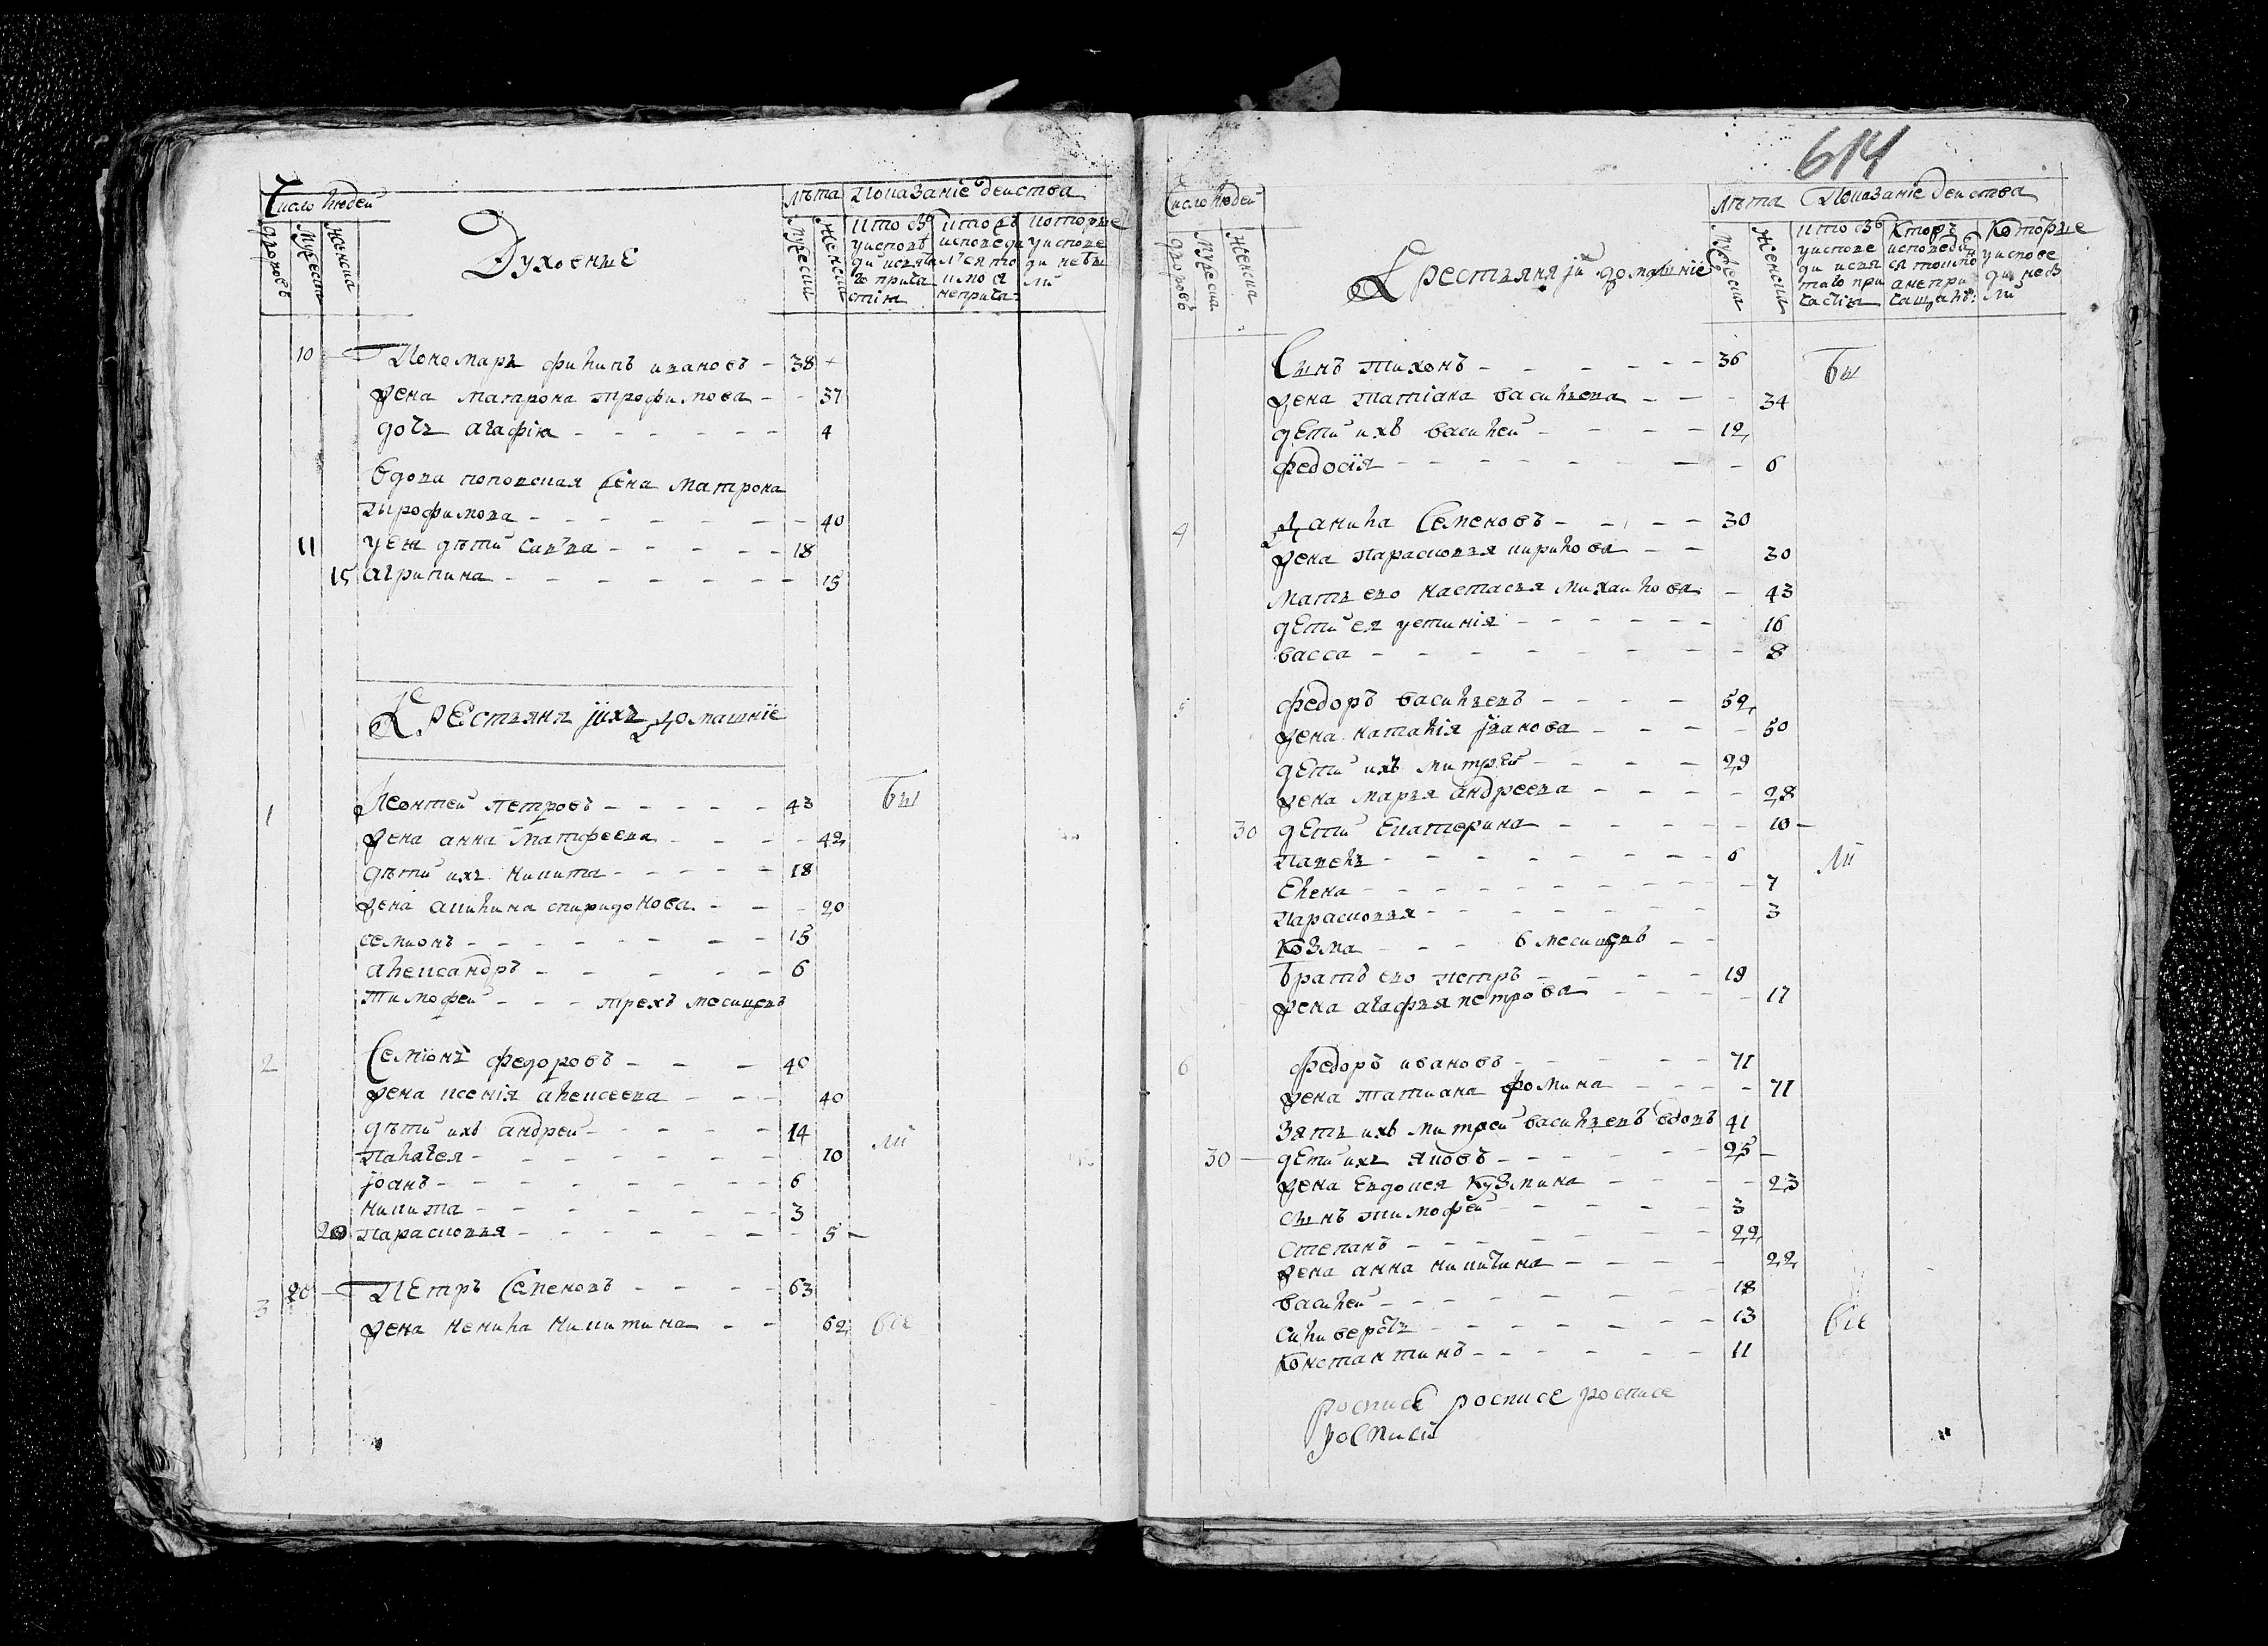 Число людей
дворовъ
Мужеска
Женска
Духовные
лѣта
Мужеска
Женска
показаніе действа
кто бъ
у испове
ди и свята
гъ прича
стія
кто въ
исповеда
лся то
кмо а
неприча:
которые
у испове
ди не бы
ли
10 Пономарь филипъ ивановъ - 38
жена матрона трофимова - - 37
дочь агафія - - - - - - 4
вдова поповская жена матрона
трофимова - - - - - - 40
11 у ей дѣти савва - - - - - 18
15 агрипина - - - - - - - 15
Крестьяня ихъ домашніе
1 Леонтей петровъ - - - - - 43 бы
жена анна матфеева - - - 42
дѣти ихъ никита - - - - - 18
жена акилина спиридонова - - - 20
семионъ - - - - - - - 15
александръ - - - - - - 6
тимофей - - - трехъ месицевъ
2 Семіонъ федоровъ - - - 40
жена ксенія алексеева - - - 40
дѣти ихъ андрей - - - - - 14
палагея - - - - - - - 10 ли
іоанъ - - - - - - - - 6
никита - - - - - - - 3
20 парасковья - - - - - - - 5 -
3 20 - Петръ Семеновъ - - - - 63
жена ненила никитина - - 62 все
614
Число людей
дворовъ
Мужеска
Женска
Крестьяня ихъ домашніе
лѣта
Мужеска
Женска
Показаніе действа
кто бъ
у испове
ди и свя
таго при
частія
Кторъ
исповеда
ся токмо
а непри
чащалъ:
Которые
у испове
ди не бы
ли
Сынъ тихонъ - - - - - - 36 бы
жена татіана васильева - - - 34
дети ихъ василей - - - - - 12
федосія - - - - - - - - 6
4 Данила Семеновъ - - - - 30
жена парасковья кирилова - - 30
мать ево настасья михаилова - 43
дети ея устинія - - - - - - 16
васса - - - - - - - - 8
5 федоръ васильевъ - - - - 52
жена наталія іванова - - - - 50
дети ихъ митрей - - - - 29
жена марья андреева - - - - 28
30 дети Екатерина - - - - - 10 -
павелъ - - - - - - - - 6 ли
Елена - - - - - - - - - 7
парасковья - - - - - - - 3
Козма - - - 6 месицевъ - -
братъ ево петръ - - - - - 19
жена агафья петрова - - - - 17
6 федоръ ивановъ - - - - - - 71
жена татиана фомина - - - - 71
зять ихъ митрей васильевъ вдовъ 41
30 - дети ихъ яковъ - - - - - - 25 -
жена Евдокея Кузмина - - - - 23
сынъ тимофей - - - - - 3
Степанъ - - - - - - - 22
жена анна никитина - - - - - 22
василей - - - - - - - 18
силиверстъ - - - - - - 13 все
Константинъ - - - - - - 11
росписе росписе росписе
росписи